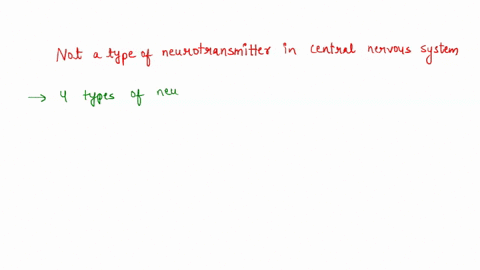 Not a type of neurotransmitter in central nervous system
→ 4 types of neu